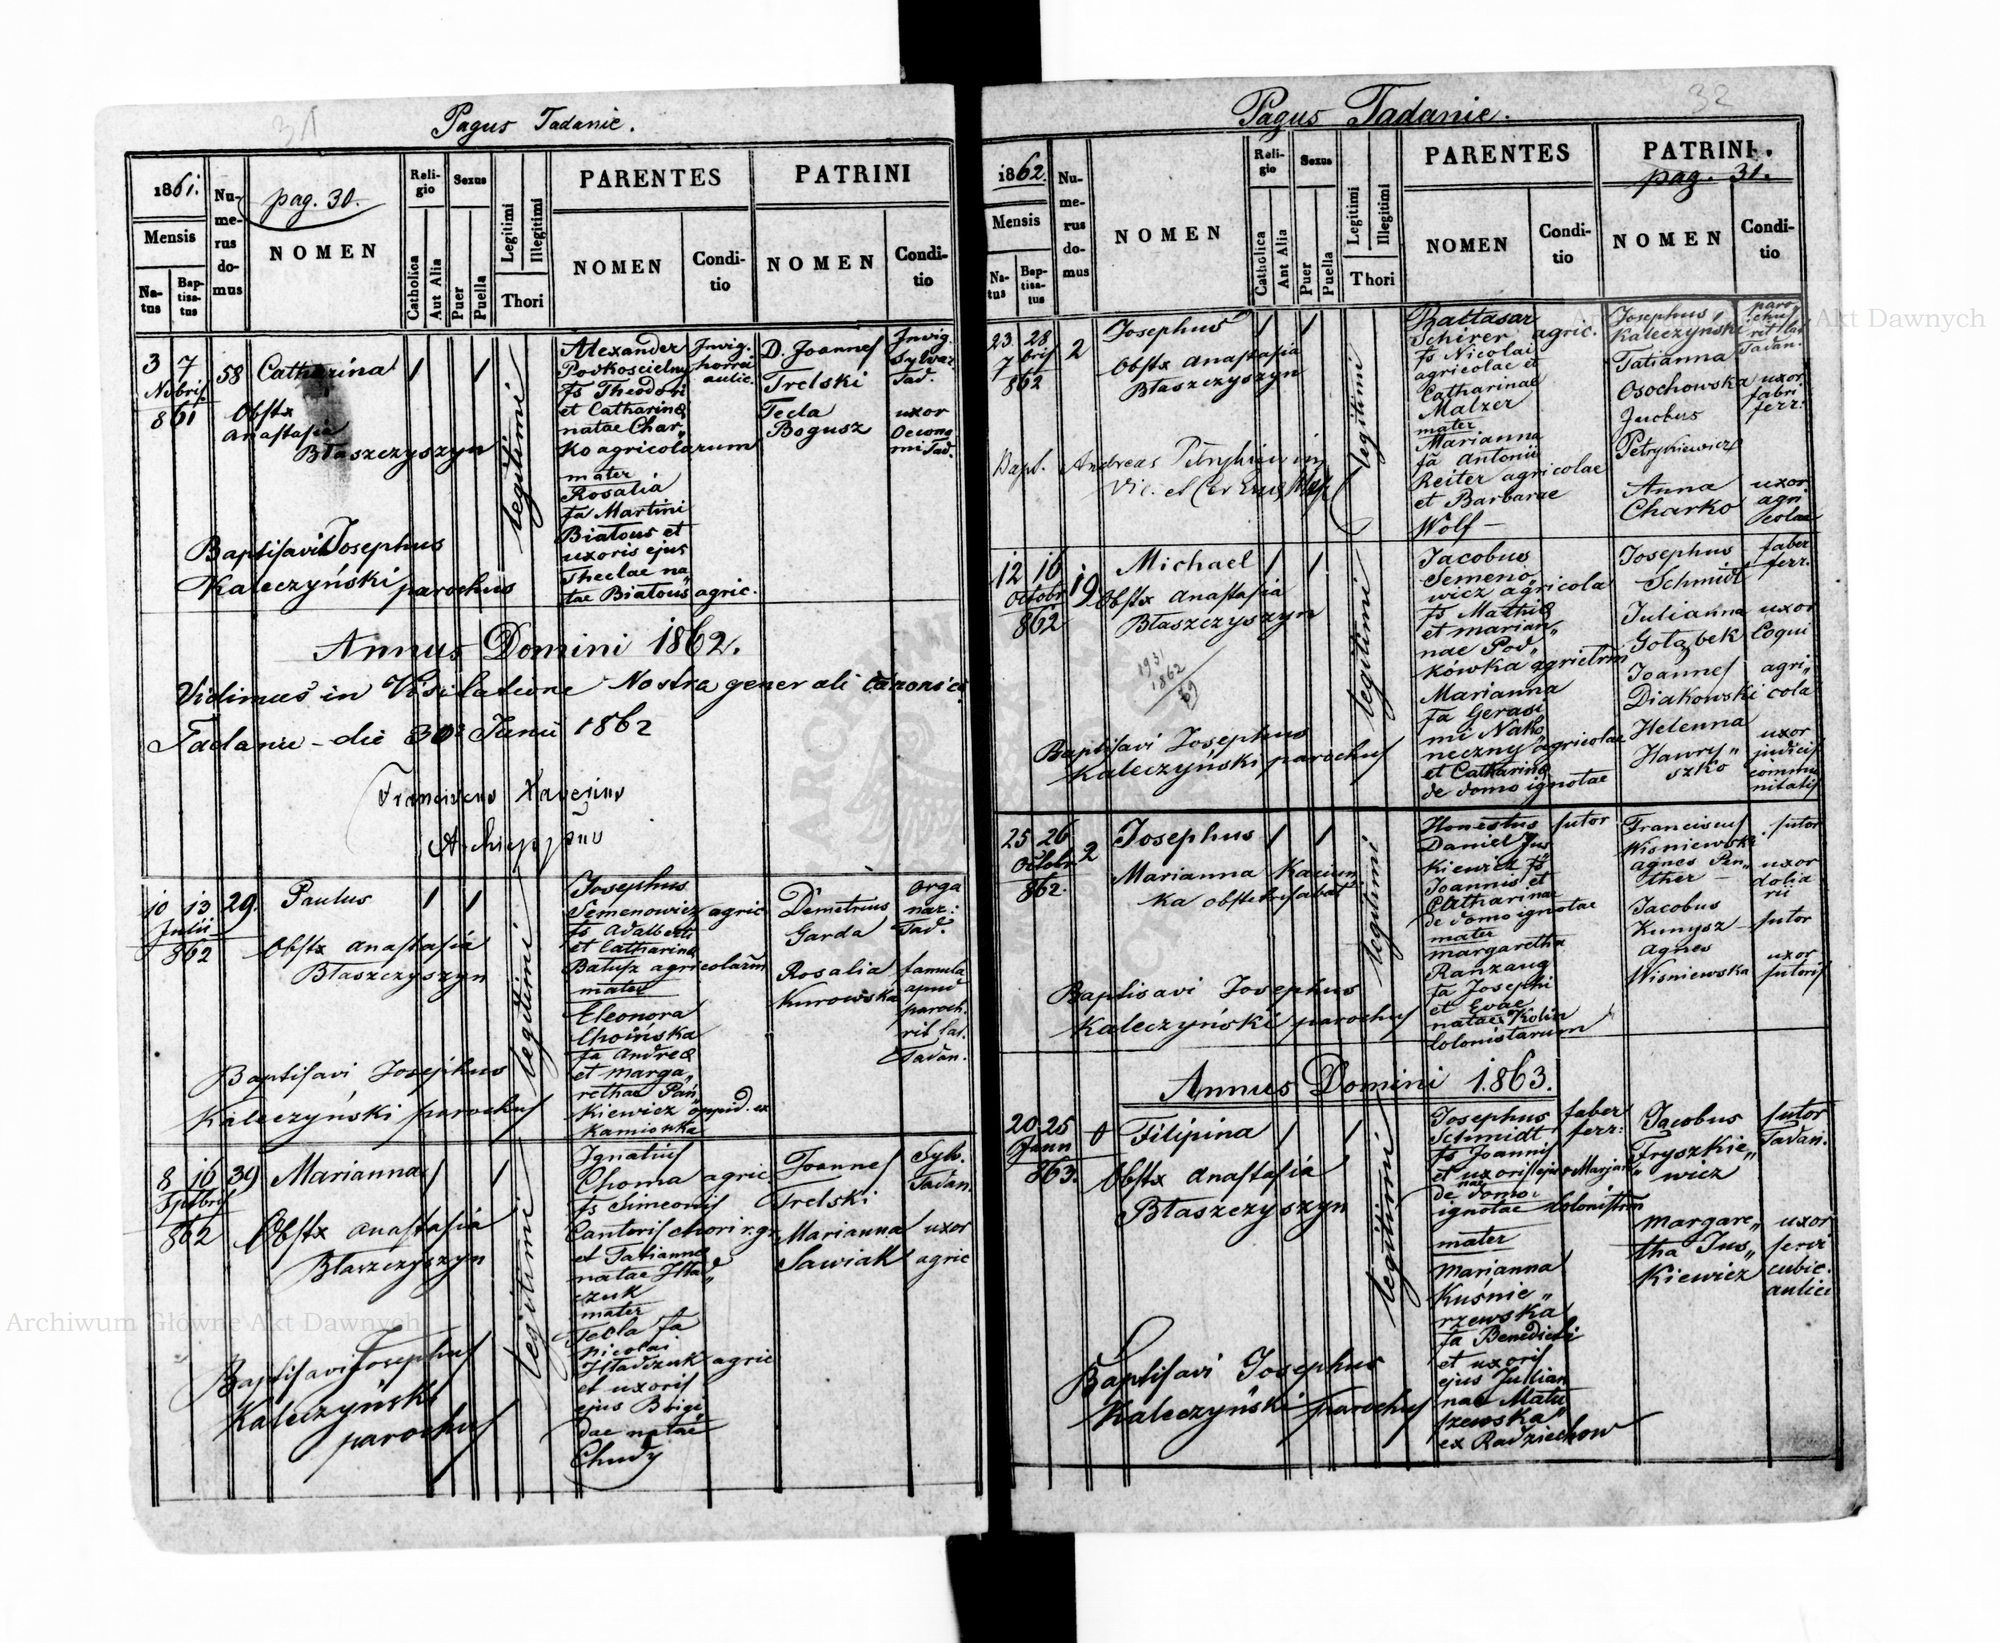 Pagus Tadanie.
31
1861.
Mensis
Natus
Baptisatus
Numerus domus
pag. 30.
NOMEN
Religio
Catholica
Aut Alia
Sexus
Puer
Puella
Legitimi
Illegitimi
Thori
PARENTES
NOMEN
Conditio
PATRINI
NOMEN
Conditio
3 7
Nobris
861
58
Catharina
Obstx
Anastasia
Błaszczyszyn
Baptisavit Josephus
Kaleczyński parochus
legitimi
Alexander
Podkoscielny
fs Theodori
et Catharinæ
natae Char„
ko agricolarum
mater
Rosalia
fa Martini
Białous et
uxoris ejus
Theclae na„
tae Białous agric.
Invig.
horrei
aulic.
D. Joannes
Trelski
Tecla
Bogusz
Invig.
Sylvar.
Tad.
uxor
Oecono
mi Tad.
Annus Domini 1862.
Vidimus in Visitatione Nostra generali canonica
Tadanie - die 30 Junii 1862
Franciscus Xaverius
10 13
Julii
862
29.
Paulus
Obstx Anastasia
Błaszczyszyn
Baptisavi Josephus
Kaleczyński parochus
legitimi
Josephus
Semenowicz agric
fs Adalberti
et Catharinæ
Batusz agricolarum
mater
Eleonora
Choińska
fa Andreæ
et Marga„
rethae Pań
kiewicz oppid. ex
Kamionka
Demetrius
Garda
Rosalia
Kurowska
orga
nar:
Tad.
famula
apud
paroch.
rit. lat.
Tadan.
8 10
Septbris
862
39
Marianna
Obstx Anastasia
Błaszczyszyn
Baptisavi Josephus
Kaleczyński
parochus
legitimi
Ignatius
Choma agric
fs Simeonis
Cantoris chori r.gr.
et Tatiannæ
natae
czuk
mater
Tecla fa
Nicolai
agric
et uxoris
ejus Brigi„
dae natae
Chudy
Joannes
Trelski
Marianna
Sawiak
Sylv.
Tadan.
uxor
agric
Pagus Tadanie.
32
1862.
Mensis
Natus
Baptisatus
Numerus domus
NOMEN
Religio
Catholica
Aut Alia
Sexus
Puer
Puella
Legitimi
Illegitimi
Thori
PARENTES
NOMEN
Conditio
PATRINI.
pag. 31.
NOMEN
Conditio
23 28
7bris
862
2
Josephus
Obstx Anastasia
Błaszczyszyn
Bapt. Andreas
legitimi
Baltasar
Schirer agric.
fs Nicolai
agricolae et
Catharinae
Malzer
mater
Marianna
fa Antonii
Reiter agricolae
et Barbarae
Wolf -
Josephus
Kaleczynski
Tatianna
Osochowska
Jacobus
Petrykiewicz
Anna
Charko
paro
chus
rit lat
Tadan.
uxor
fabri
ferr:
uxor
agri
colae
12 16
Octobr
862
19
Michael
Obstx Anastasia
Błaszczyszyn
1931
1862
69
Baptisavi Josephus
Kaleczyński parochus
legitimi
Jacobus
Semeno„
wicz agricola
fs Mathiæ
et Marian„
nae Pod„
kówka agricolarum
Marianna
fa Gerasi
mi Nako
neczny agricolae
et Catharinæ
de domo ignotae
Josephus
Schmidt
Julianna
Gołąbek
Joannes
Diakowski
Helenna
Hawry„
szko
faber
ferr.
uxor
Coqui
agri„
cola
uxor
judicis
commu
nitatis
25 26
Octobr
862.
2
Josephus
Marianna Kamin
ka obstetrisabat
Baptisavi Josephus
Kaleczyński parochus
legitimi
Honestus sutor
Daniel Jus
kiewicz fs
Joannis et
Catharinae
de domo ignotae
mater
Margaretha
Ranzaug
fa Josephi
et Evae
natae Kolin
Colonistarum
Franciscus
Wisniewski
Agnes Pen„
ther -
Jacobus
Kunysz
Agnes
Wisniewska
sutor
uxor
dolia
rii
sutor
uxor
sutoris
Annus Domini 1863.
20 25
Jann
863.
0
Filipina
Obstx Anastasia
Błaszczyszyn
Baptisavi Josephus
Kaleczyński parochus
legitimi
Josephus
Schmidt
fs Joannis
et uxoris ejus Marian
nae
de domo
ignotae Colonistrm
mater
Marianna
Kuśnie„
rzewska
fa Benedicti
et uxoris
ejus Julian
nae Matu
szewska
ex Radziechow
faber
ferr:
Jacobus
Fryszkie„
wicz
Margare„
tha Jus„
kiewicz
sutor
Tadan.
uxor
servi
cubic.
aulici
Archiwum Główne Akt Dawnych
Archiwum Główne Akt Dawnych